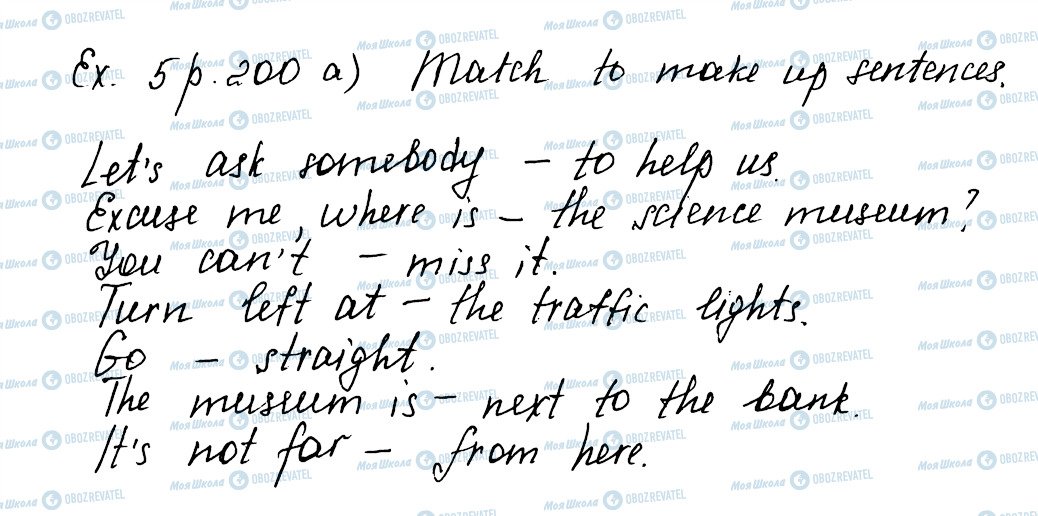 Ex. 5 p. 200 a) Match to make up sentences.
Let's ask somebody – to help us.
Excuse me, where is – the science museum?
You can't – miss it.
Turn left at – the traffic lights.
Go – straight.
The museum is – next to the bank.
It's not far – from here.
Моя Школа OBOZREVATEL